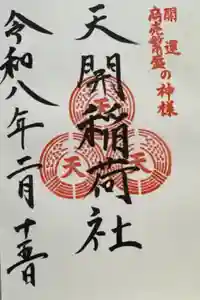 開運
商売繁盛の神様
天開稲荷社
天
天
天
令和八年二月十五日